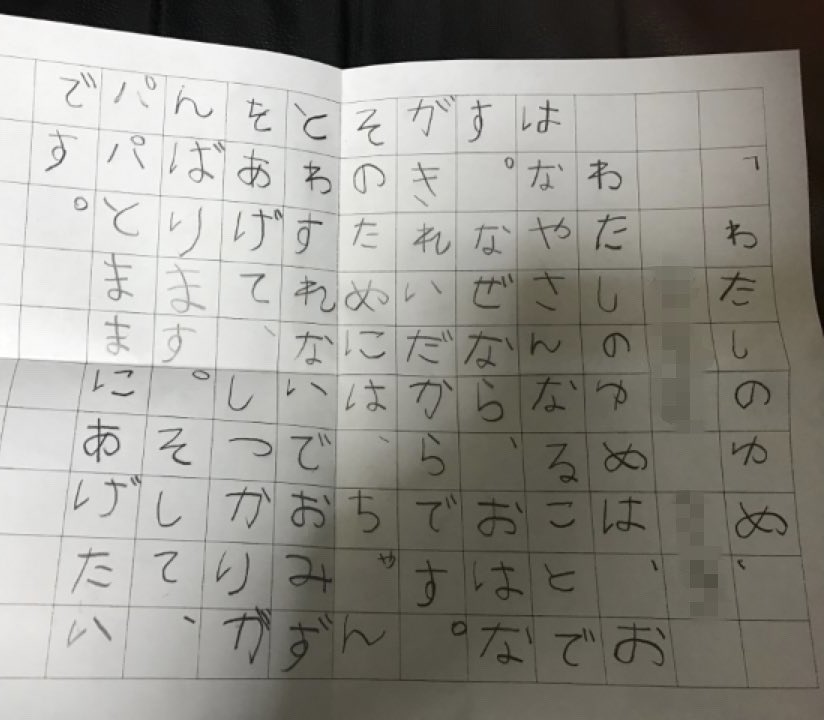 「わたしのゆめ、
わたしのゆめは、お
はなやさんなることで
す。なぜなら、おはな
がきれいだからです。
そのためには、ちゃん
とわすれないでおみず
をあげて、しつかりが
んばります。そして、
パパとままにあげたい
です。